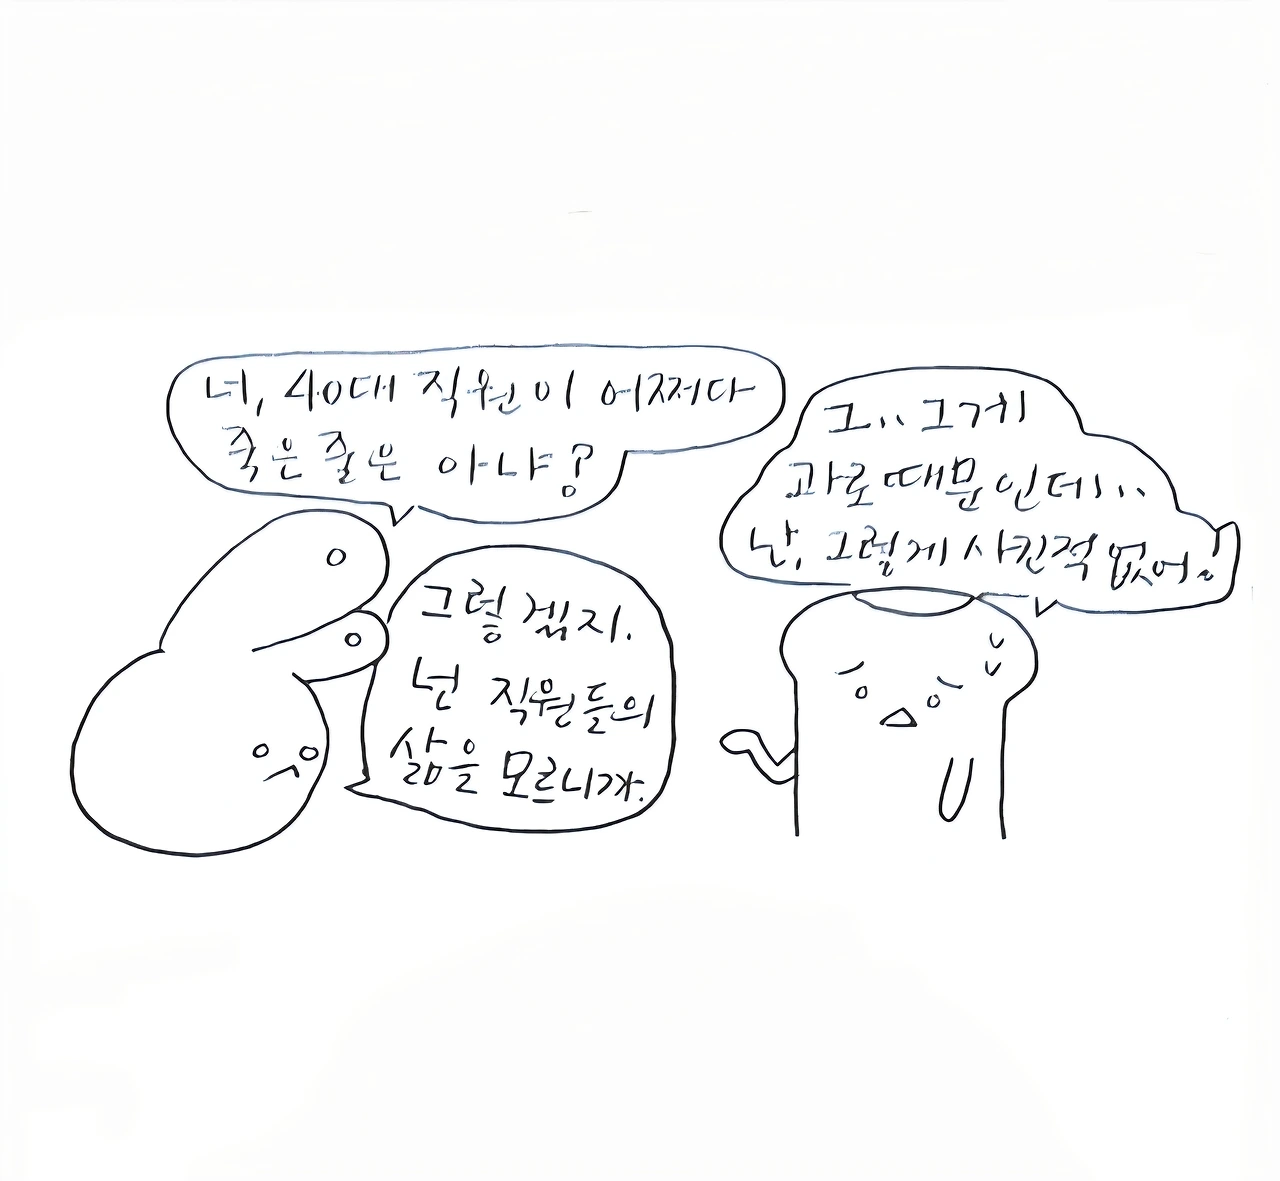 너, 40대 직원이 어쩌다
죽은 줄은 아냐?
그.. 그게
과로 때문인데...
난, 그렇게 사킨적 없어!
그렇겠지.
넌 직원들의
삶을 모르니까.